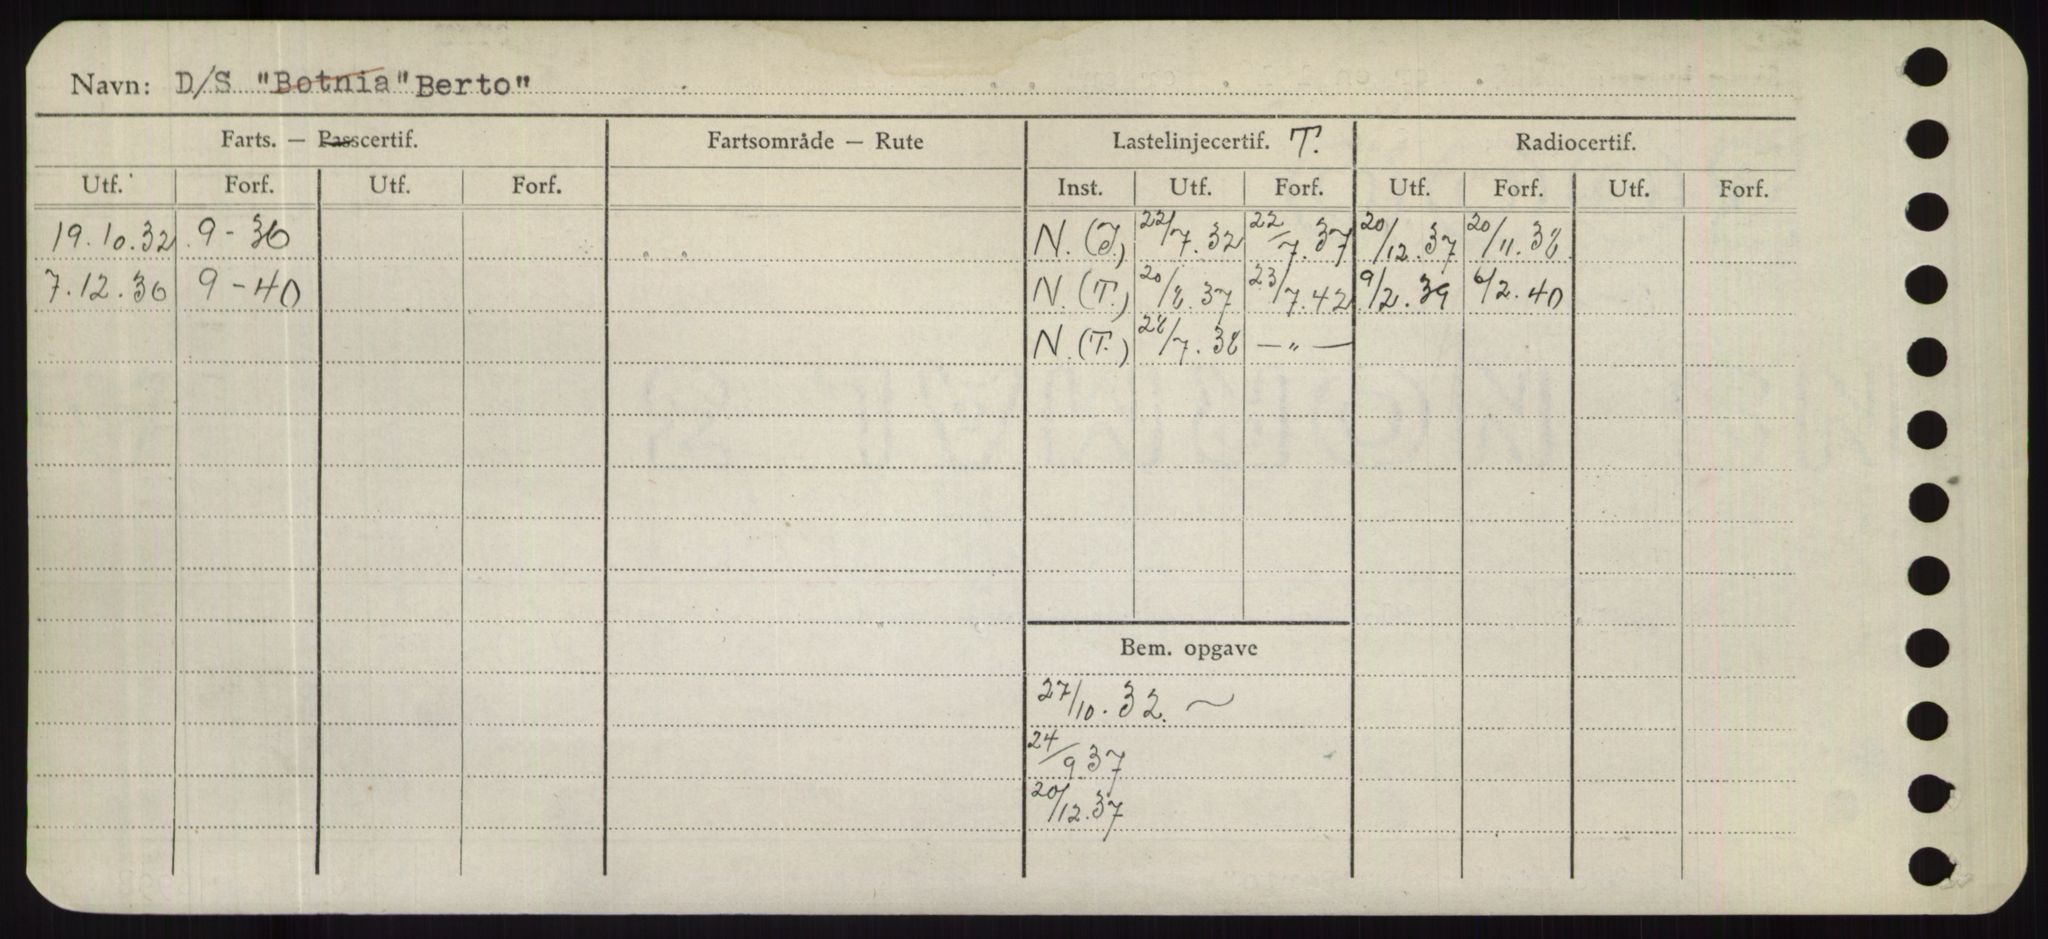 Navn: D/S "Botnia" Berto"
Farts. — Passcertif. Fartsområde — Rute Lastelinjecertif. T. Radiocertif.
Utf. Forf. Utf. Forf. Inst. Utf. Forf. Utf. Forf. Utf. Forf.
19.10.32 9-36 N. (T.) 22/7.32 22/7.37 20/12.37 20/11.38
7.12.36 9-40 N. (T.) 20/8.37 23/7.42 9/2.39 6/2.40
N. (T.) 28/7.38 —„—
Bem. opgave
27/10.32. ~
24/9 37
20/12.37